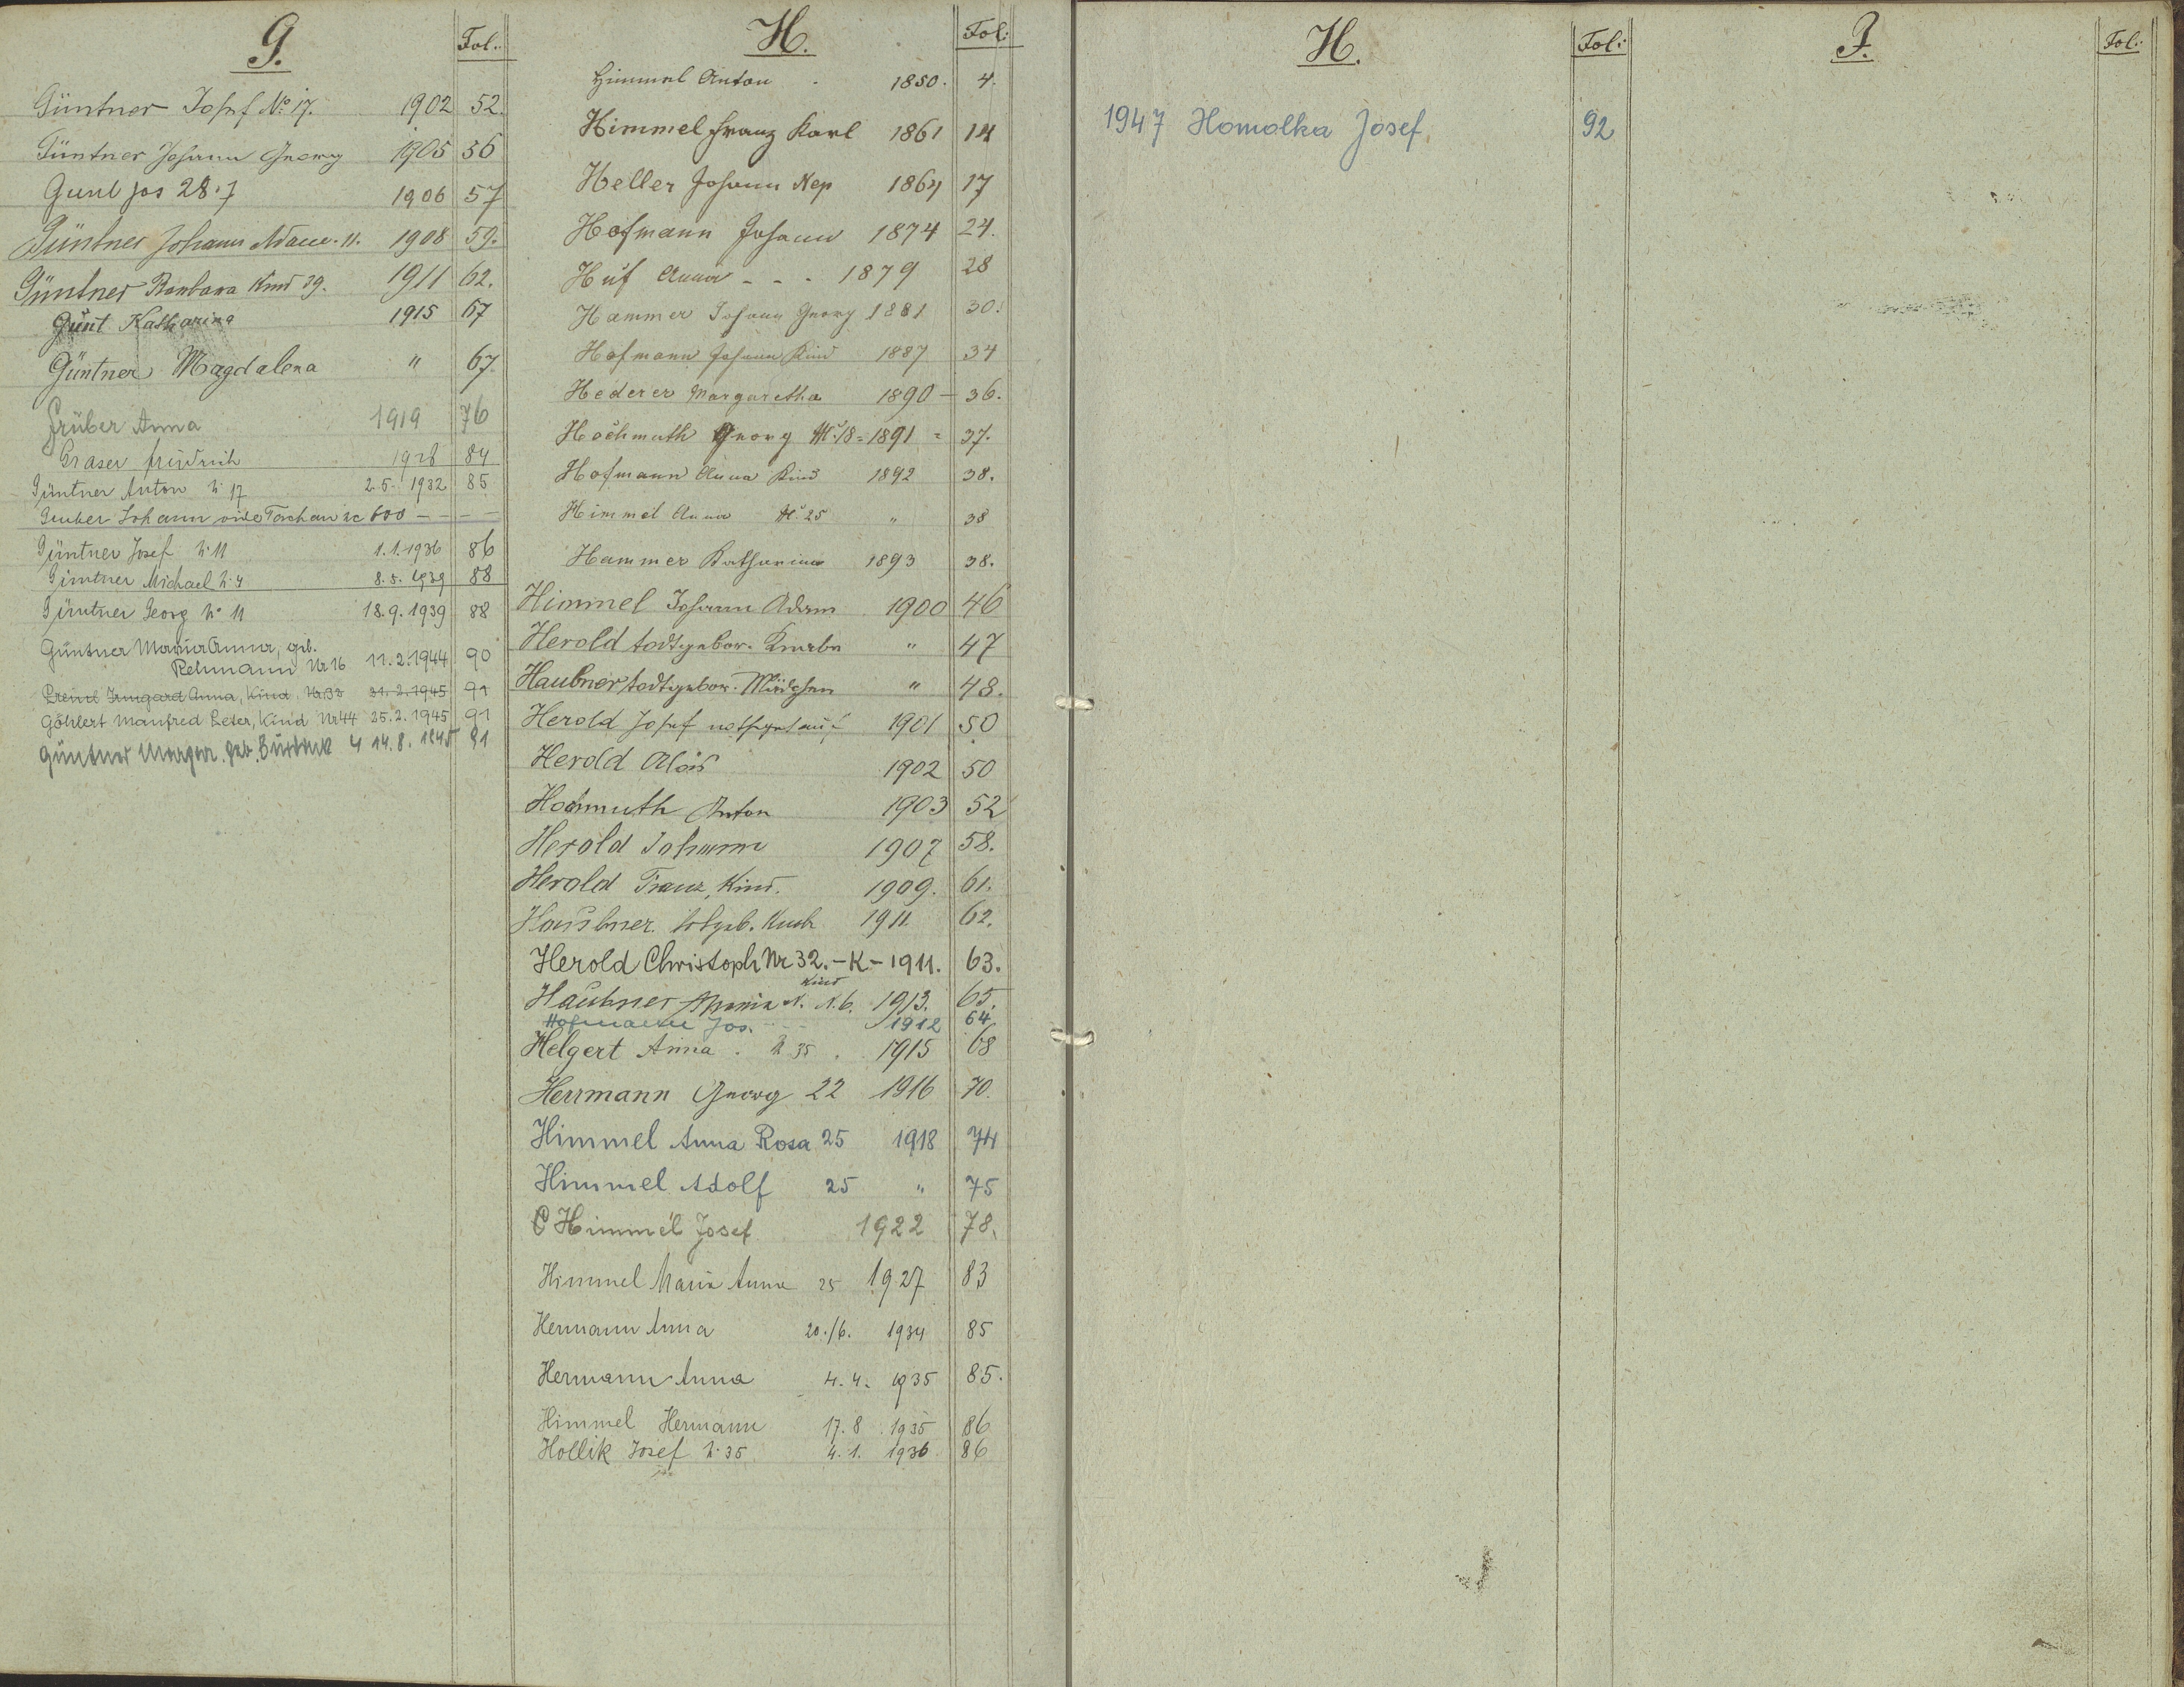 G. Fol.
Güntner Josef No 17. 1902 52.
Güntner Johann Georg 1905 56
Gunl Jos 28.7 1906 57
Güntner Johann Adam. 11. 1908 59.
Güntner Barbara Kind 39. 1911 62.
Günt Katharina 1915 67
Güntner Magdalena " 67.
Grüber Anna 1919 76
Graser Friedrich 1928 84
Güntner Anton N. 17 2.5. 1932 85
Gruber Johann vide 600 - - -
Güntner Josef N. 11 1.1.1936 86
Güntner Michael N. 4 8.5. 1939 88
Güntner Georg No 11 18.9.1939 88
Güntner Maria Anna, geb.
Rehmann Nr 16 11.2.1944 90
Irmgard Anna, Kind, Nr. 33 31.2.1945 91
Göhlert Manfred Peter, Kind Nr 44 25.2.1945 91
Güntner geb. 4 14.8.1945 91
H. Fol:
Himmel Anton 1850. 4.
Himmel Franz Karl 1861 14
Heller Johann Nep 1864 17
Hofmann Johann 1874 24.
Huf Anna - - - 1879 28
Hammer Johann Georg 1881 30.
Hofmann Johann Kind 1887 34
Hederer Margaretha 1890 - 36.
Hochmuth Georg No. 18 = 1891 = 37.
Hofmann Anna Kind 1892 38.
Himmel Anna No. 25 " 38
Hammer Katharina 1893 38.
Himmel Johann Adam 1900 46
Herold todtgebor. Knabe " 47
Haubner todtgebor. Mädchen " 48.
Herold Josef nothgetauft 1901 50
Herold Alois 1902 50
Hochmuth Anton 1903 52
Herold Johann 1907 58.
Herold Franz, Kind. 1909. 61.
Haubner. totgeb. Knab 1911. 62.
Herold Christoph Nr 32. - K - 1911. 63.
Haubner Maria N. Kind N. 6. 1913. 65.
Hofmann Jos. - - - 1912 64
Helgert Anna. N 35. 1915 68
Herrmann Georg 22 1916 70.
Himmel Anna Rosa 25 1918 74
Himmel Adolf 25 " 75
Himmel Josef 1922 78.
Himmel Maria Anna 25 1927 83
Hermann Anna 20./6. 1934 85
Hermann Anna 4.4. 1935 85.
Himmel Hermann 17.8. 1935 86
Hollik Josef N. 35 4.1. 1936 86
H. Fol:
1947 Homolka Josef 92
J. Fol: